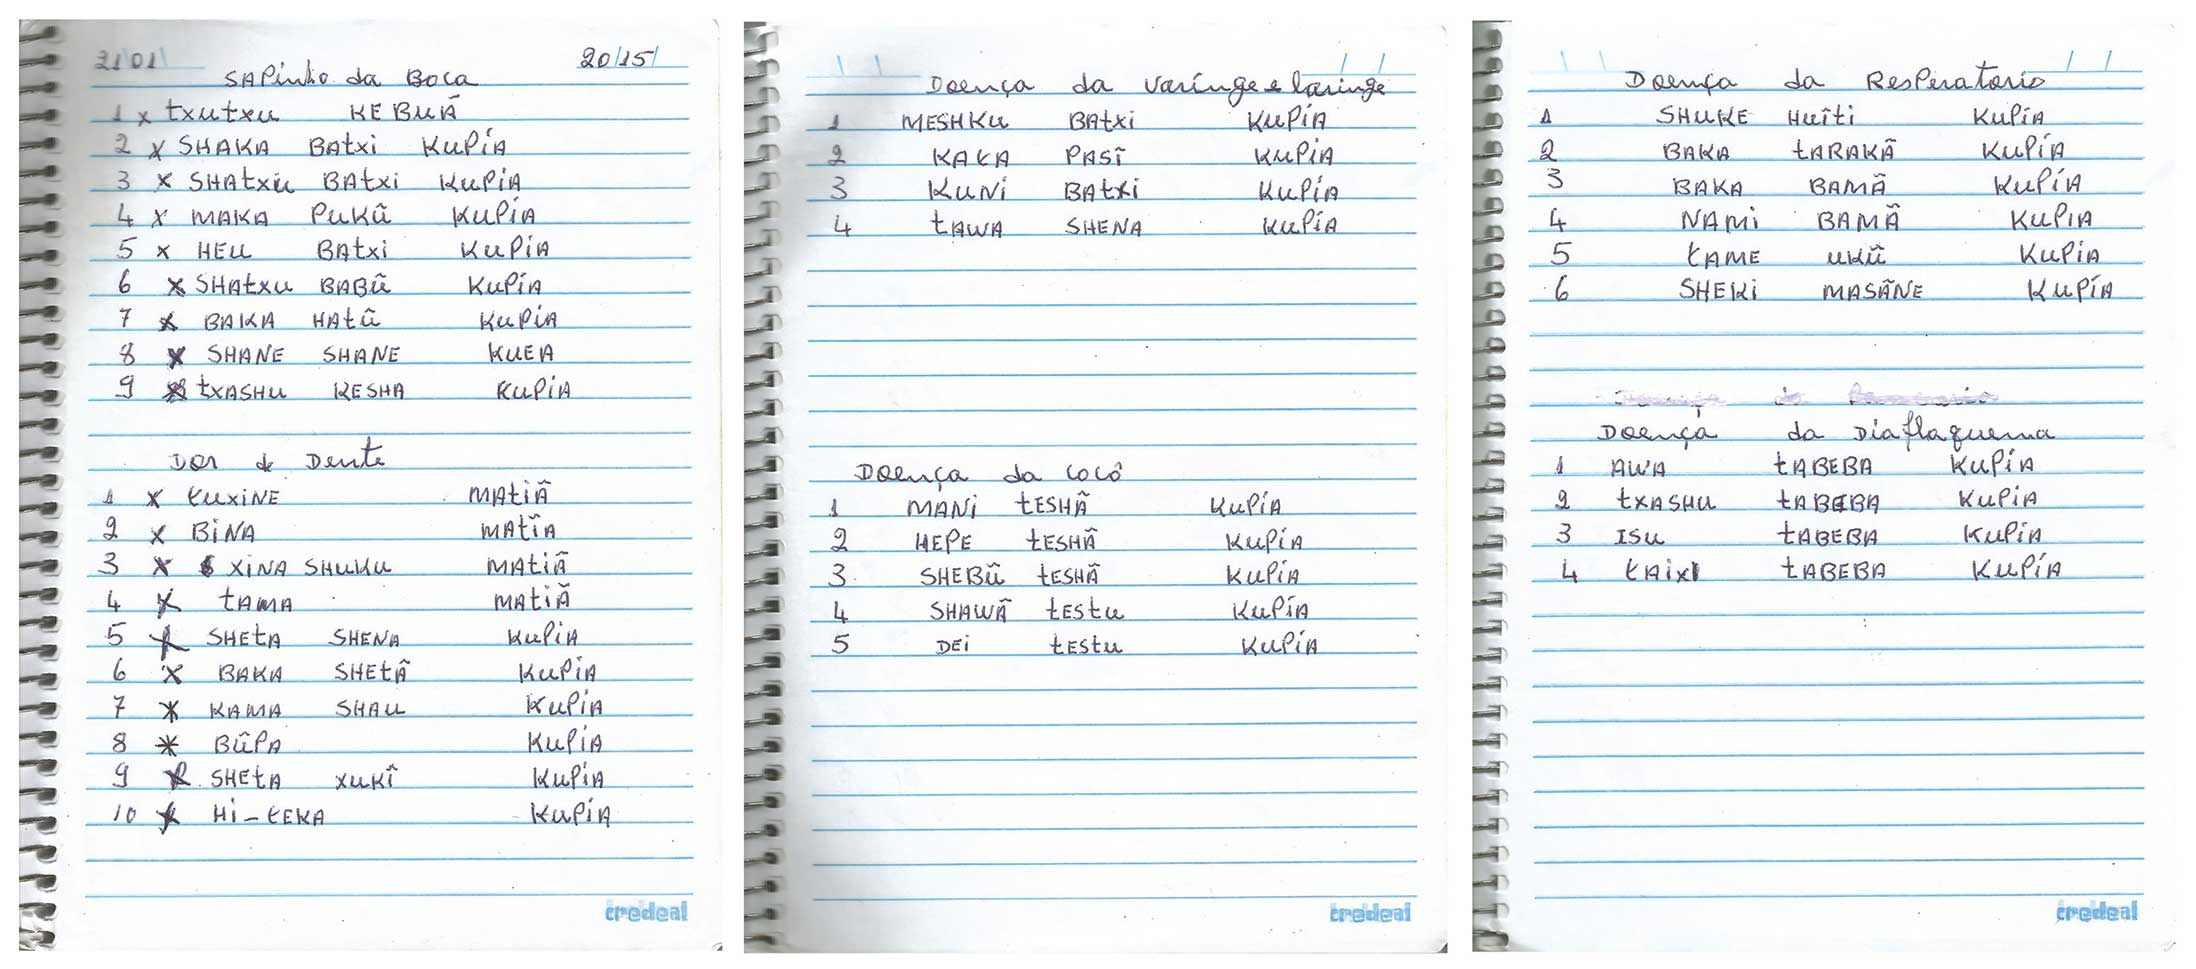 21/01/ 20/15/
SAPinho da Boca
1 x txutxu KEBUÃ
2 x SHAKA BAtxi KUPÍA
3 x SHAtxu BAtxi KUPÍA
4 x MAKA PUKÛ KUPÍA
5 x HEU BAtxi KUPÍA
6 x SHAtxu BABÛ KUPÍA
7 x BAKA HAtÛ KUPÍA
8 x SHANE SHANE KUEA
9 x txASHU KESHA KUPÍA
DOR de Dente
1 x tuxiNE MAtiÃ
2 x BiNA MAtÎA
3 x XiNA SHUKU MAtiÃ
4 x tAMA MAtiÃ
5 x SHEtA SHENA KUPÍA
6 x BAKA SHEtÃ KUPÍA
7 x KAMA SHAU KUPÍA
8 x BÛPA KUPÍA
9 x SHEtA XUKÎ KUPÍA
10 x Hi-tEKA KUPÍA
credeal
Doença da varinge e laringe
1 MESHKU BAtxi KUPÍA
2 KAtA PASÎ KUPÍA
3 KUNi BAtxi KUPÍA
4 tAWA SHENA KUPÍA
Doença da cocô
1 MANi tESHÃ KUPÍA
2 HEPE tESHÃ KUPÍA
3 SHEBÛ tESHÃ KUPÍA
4 SHAWÃ tEStu KUPÍA
5 DEi tEStu KUPÍA
credeal
Doença da Resperatorio
1 SHUKE HuÎti KUPÍA
2 BAKA tARAKÃ KUPÍA
3 BAKA BAMÃ KUPÍA
4 NAMi BAMÃ KUPÍA
5 tAME UKÛ KUPÍA
6 SHEKi MASÃNE KUPÍA
Doença da Diaflaquema
1 AWA tABEBA KUPÍA
2 txASHU tABEBA KUPÍA
3 ISU tABEBA KUPÍA
4 tAixi tABEBA KUPÍA
credeal